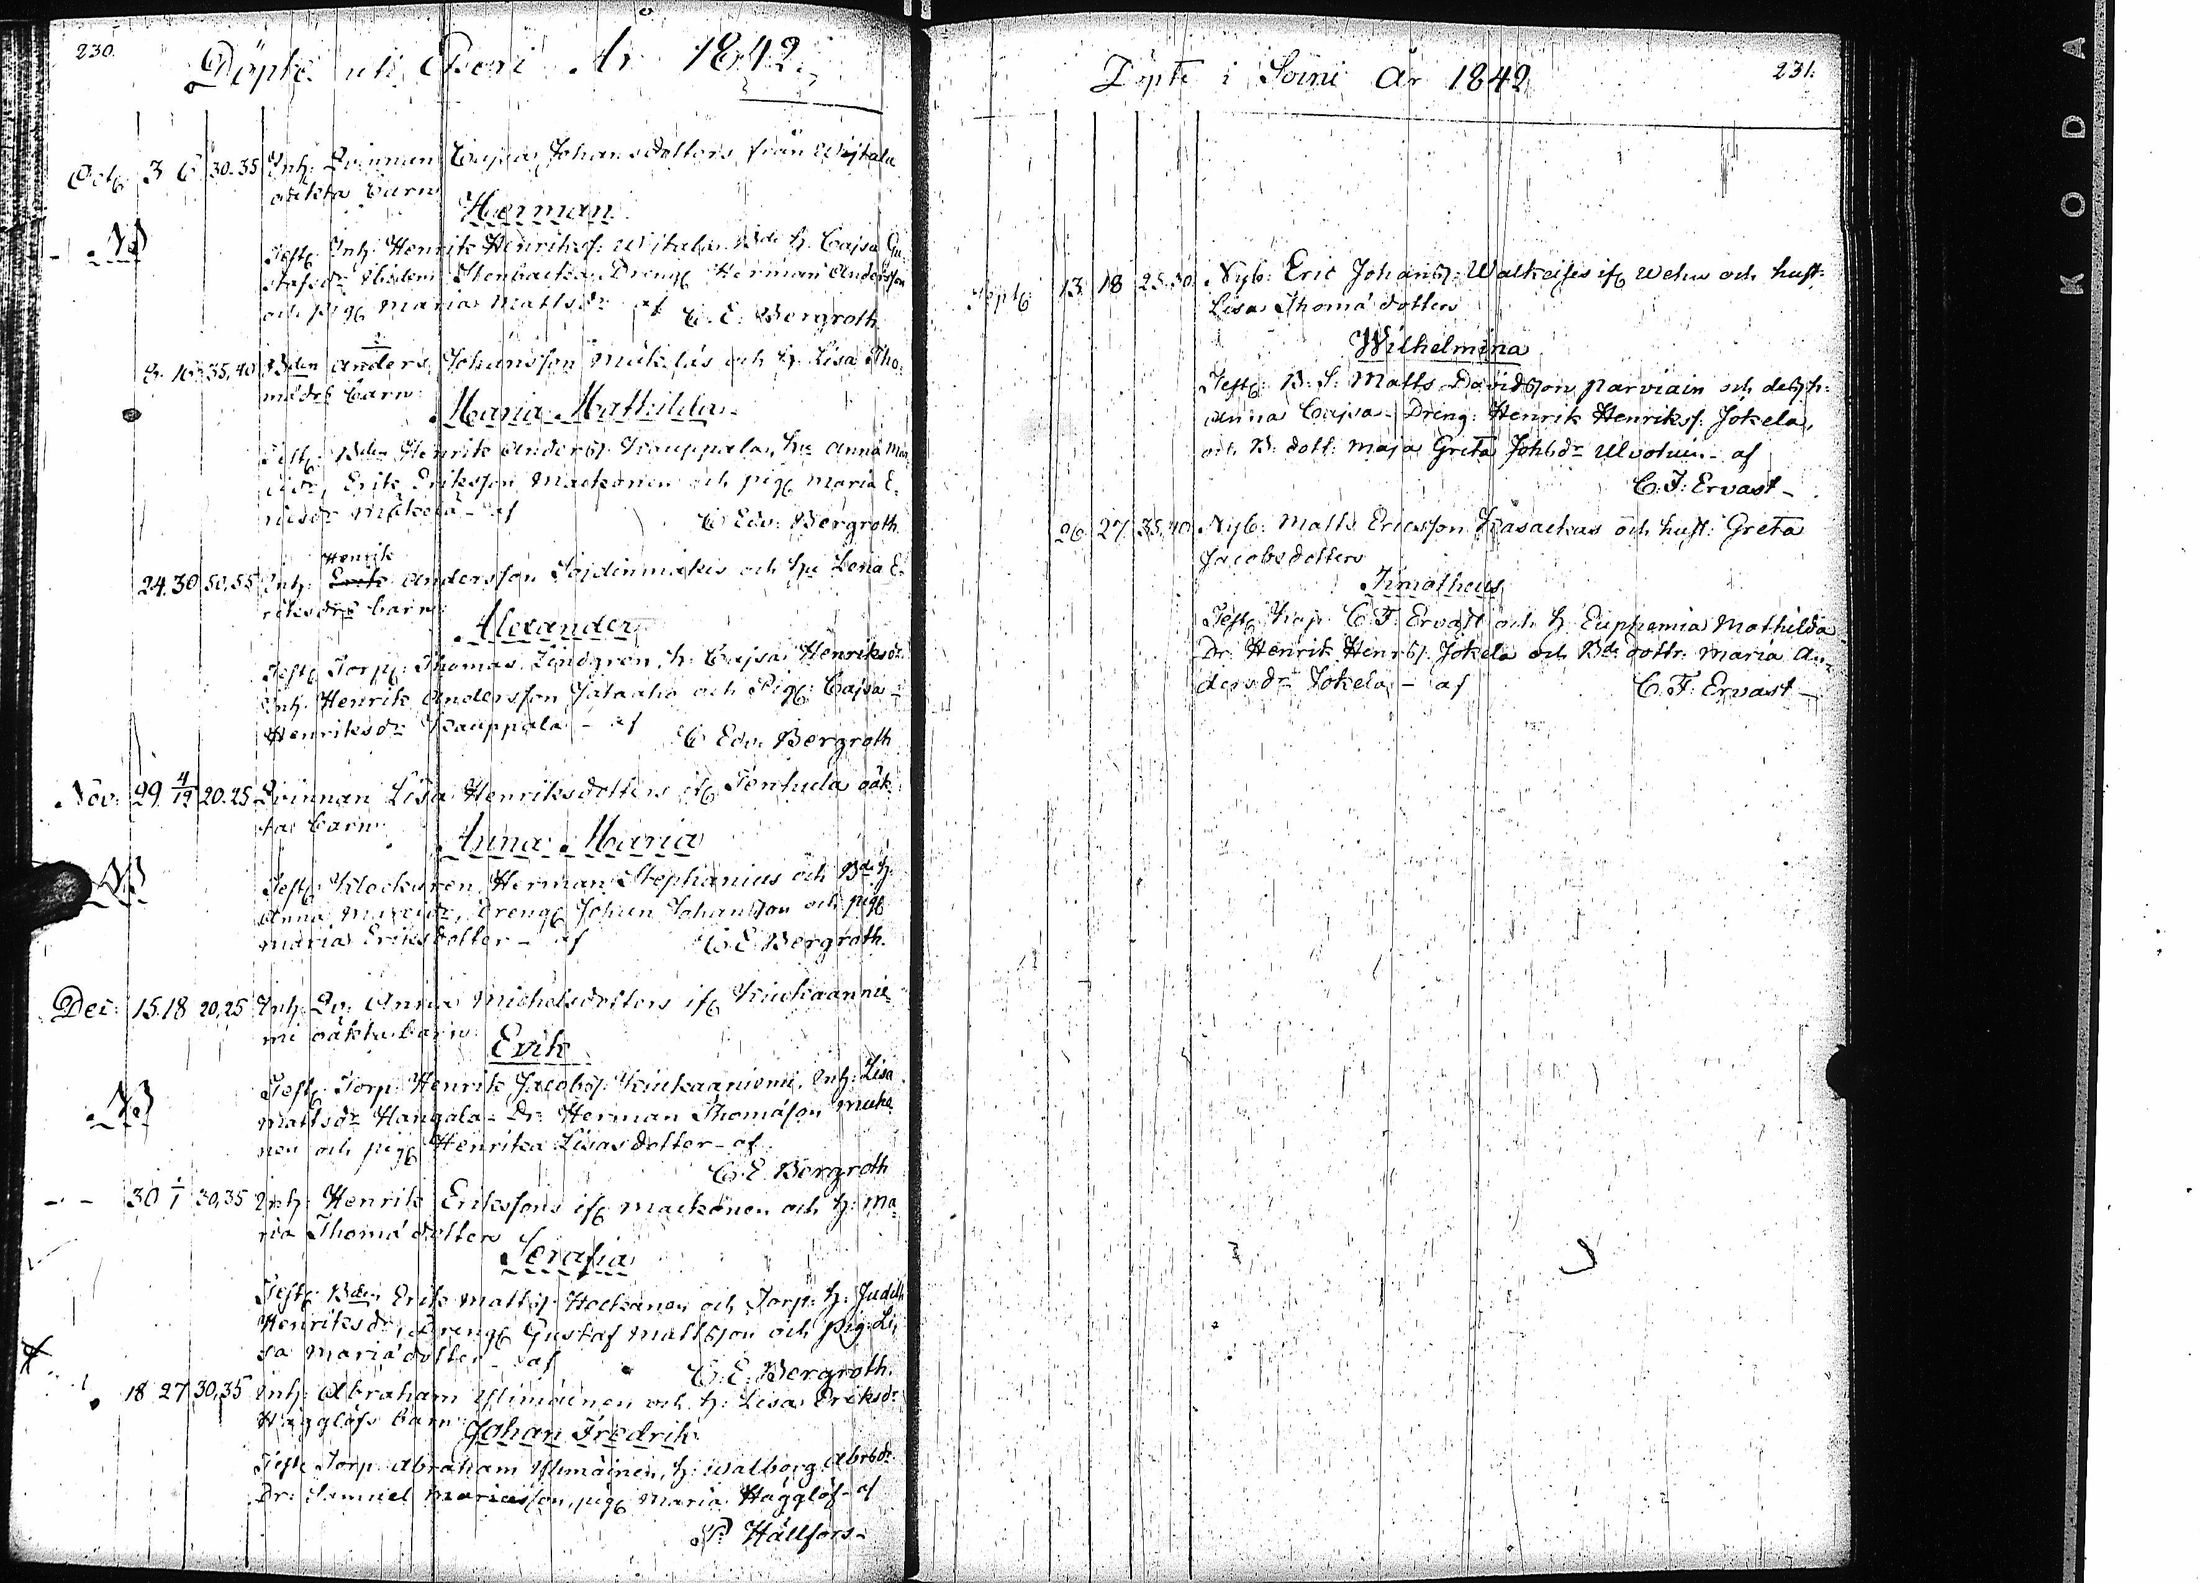 230.
Döpte uti År 1842.
Octb. 3 6 30.35 Inh: Qvinnan Cajsa Johansdotters från Wiitala
oäkta barn
Herman
Test: Inh: Henrik Henrikss: Wiitala, Bde h. Cajsa Gu-
stafsdr Stenbacka, Dreng Herman Andersson
och pig. Maria Mattsdr af C. E. Bergroth
8. 16. 35,40 Bden Anders Johansson Mäkeläs och h. Lisa Tho-
mædrs barn
Maria Mathilda
Test: Bden Henrik Anderss. Kauppala, hu Anna
Erik Eriksson Mackonen och pig. Maria E-
ricsdr Mäkelä - af
C Edv: Bergroth
Henrik
24. 30 50,55 Inh: Erik Andersson Sojdinmäkis och hu Lena E-
riksdrs barn
Alexander
Test. Torp: Thomas Lindgren, h. Cajsa Henriksdr
Inh. Henrik Andersson och Pig: Cajsa
Henriksdr Kauppala - af
C Edv: Bergroth
Nov: 29 4/12 20.25 Qvinnan Lisa Henriksdotters if. oäk-
ta barn
Anna Maria
Test: Klockaren Herman Stephanius och Bde h.
Anna dreng Johan Johansson och pig.
Maria Eriksdotter - af C. E. Bergroth.
Dec: 15. 18 20,25 Inh: Qv: Anna Michelsdotters if. Kiukaannie-
mi oäkta barn
Erik
Test: Torp: Henrik Jacobss. Kiukaaniemi, Inh: Lisa
Mattsdr Hangala - Dr: Herman Thomasson
nen och pig. Henrika Lisasdotter - af
C. E. Bergroth
- - 30 1/1 30,35 Inh: Henrik Erikssons if. Mackonen och h: Ma-
ria Thomædotters
Serafia
Test: Bden Erik Matts. Hockanen och Torp: h: Judith
Henriksdr, Dreng Gustaf Mattsson och pig: Li-
sa Mariædotter - af C. E. Bergroth.
18 27 30,35 Inh: Abraham Ylimäinen och h: Lisa Eriksdr
Hägglöfs barn
Johan Fredrik
Test: Torp: Abraham Ylimäinen, h: Walborg Abrsdr
Dr: Samuel Mariasson, pig. Maria Hägglöf - af
P. Hällfors -
231.
Döpte i Soini År 1842
Septb. 13. 18 25.30. Nyb: Eric Johanss: Walkeises if. Wehu och hust:
Lisa Thomædotters
Wilhelmina
Test: B. S: Matts Davidsson Parviain och dess h:
Anna Cajsa - Dreng: Henrik Henrikss. Jokela,
och B. dott: Maja Greta Johsdr Ulvotuen - af
C. F: Ervast -
26 27. 35,40 Nyb: Matts Ericsson Kasackas och hust: Greta
Jacobsdotters
Timotheus
Test: Kap. C. F. Ervast och h. Euphemia Mathilda
Dr. Henrik Henrss. Jokela och Bde dottr: Maria An-
dersdr Jokela - af C. F: Ervast -
KODA